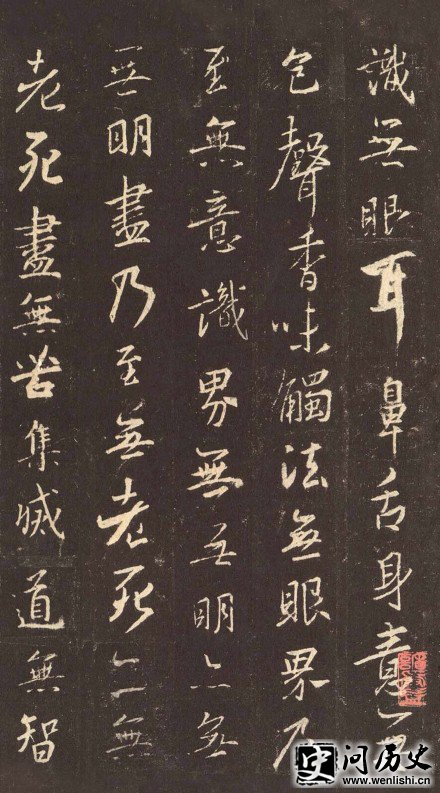 識無眼耳鼻舌身意無
色聲香味觸法無眼界乃
至無意識界無無明亦無
無明盡乃至無老死亦無
老死盡無苦集滅道無智
问历史
www.wenlishi.cn